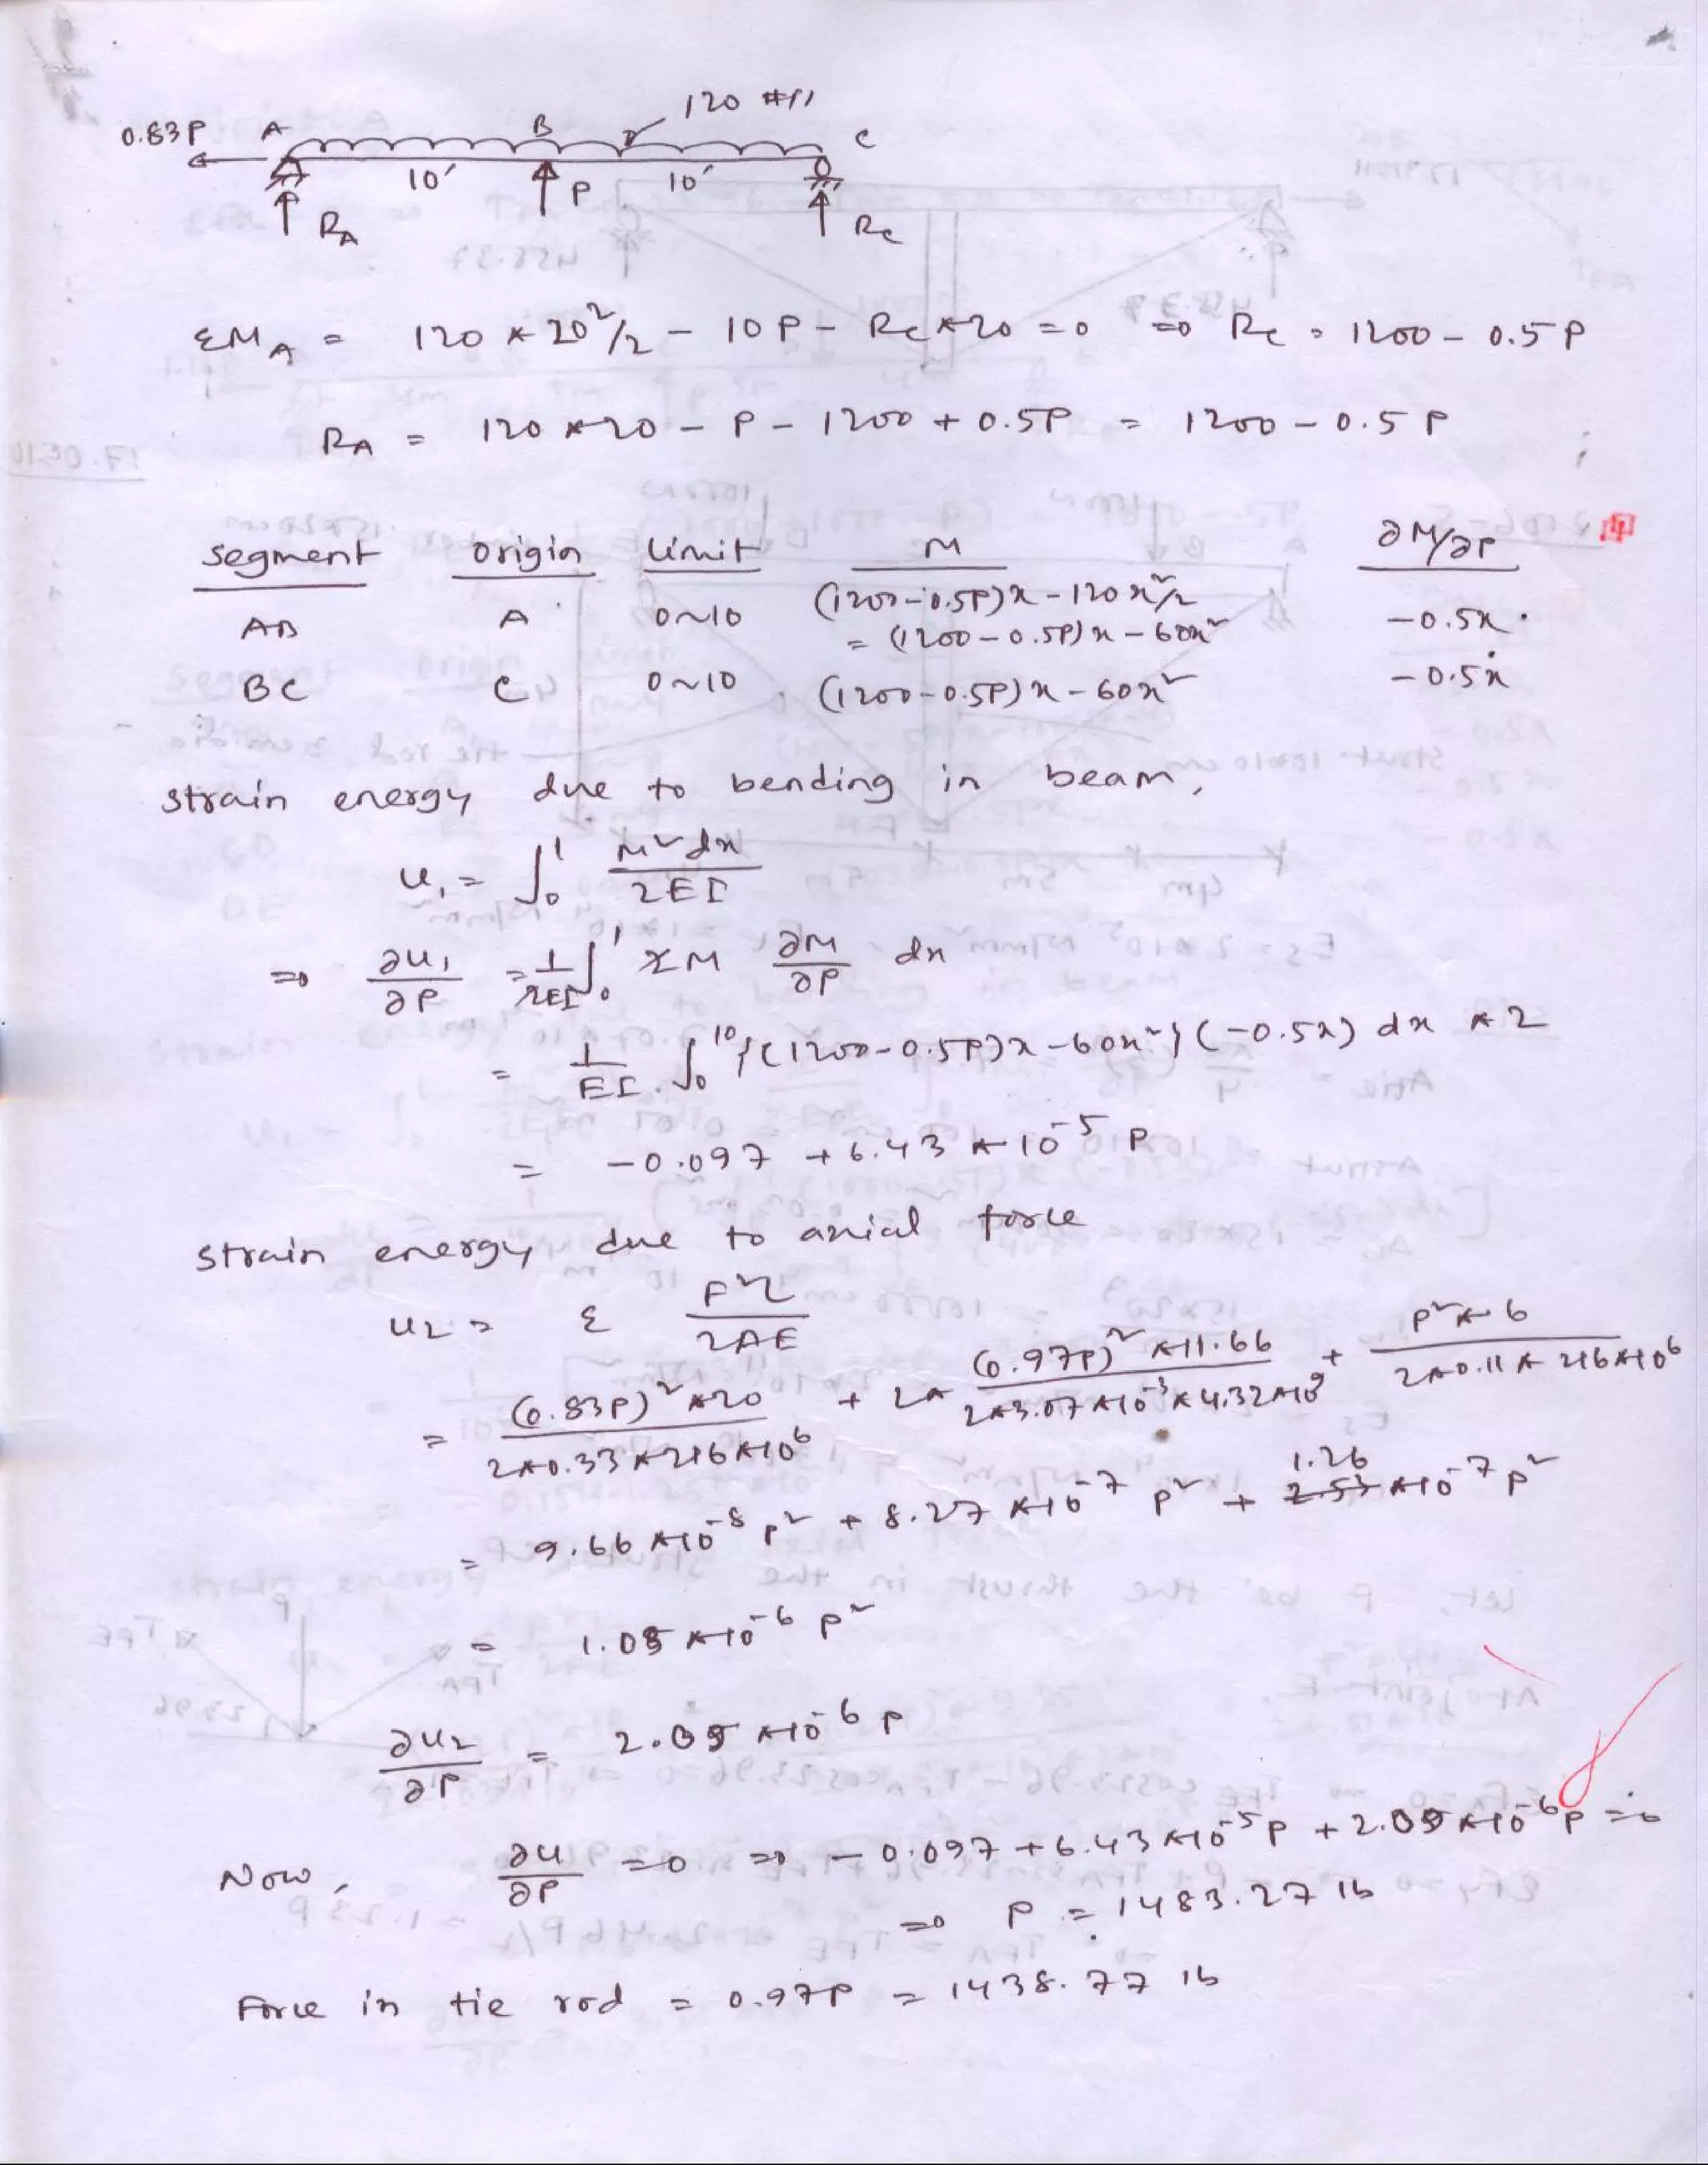 0.83P A B 120 #/1 C
10' P 10'
RA Rc
ΣMA = 120 * 20²/2 - 10P - Rc*20 = 0 => Rc = 1200 - 0.5P
RA = 120*20 - P - 1200 + 0.5P = 1200 - 0.5P
segment origin limit M ∂M/∂P
AB A 0~10 (1200-0.5P)x - 120x²/2 -0.5x
= (1200 - 0.5P)x - 60x²
BC C 0~10 (1200-0.5P)x - 60x² -0.5x
strain energy due to bending in beam,
u₁ = ∫₀¹ M²dx / 2EI
=> ∂u₁/∂P = 1/2EI ∫₀¹ 2M ∂M/∂P dx
= 1/EI . ∫₀¹⁰ {(1200-0.5P)x - 60x²} (-0.5x) dx * 2
= -0.097 + 6.43 * 10⁻⁵ P
strain energy due to axial force
u₂ = Σ F²L / 2AE
= (0.83P)² * 20 / 2*0.33*216*10⁶ + 2* (0.97P)² * 11.66 / 2*3.07*10⁻³*4.32*10⁹ + P² * 6 / 2*0.11*216*10⁶
= 9.66 * 10⁻⁸ P² + 8.27 * 10⁻⁷ P² + 1.26 * 10⁻⁷ P²
= 1.05 * 10⁻⁶ P²
∂u₂/∂P = 2.09 * 10⁻⁶ P
Now, ∂u/∂P = 0 => -0.097 + 6.43*10⁻⁵P + 2.09*10⁻⁶P = 0
=> P = 1483.27 lb
Force in tie rod = 0.97P = 1438.77 lb